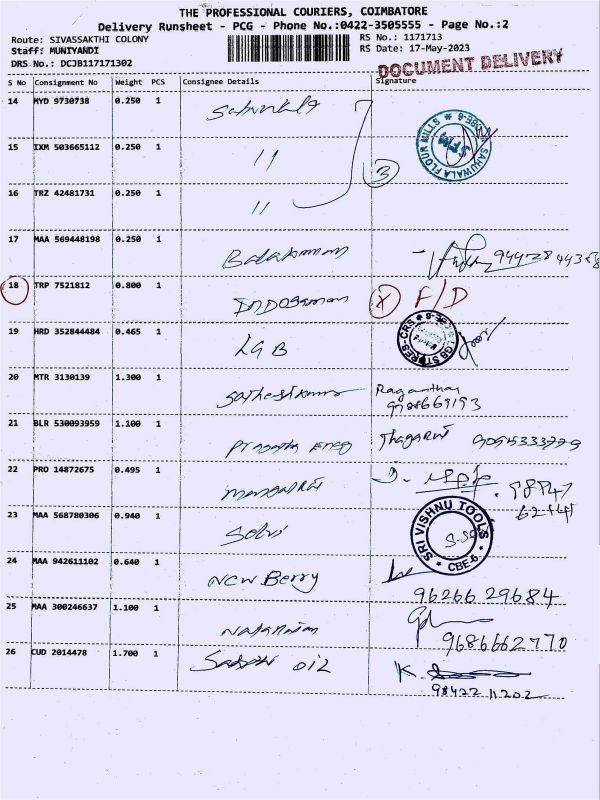 THE PROFESSIONAL COURIERS, COIMBATORE
Delivery Runsheet - PCG - Phone No.:0422-3505555 - Page No.:2
Route: SIVASSAKTHI COLONY RS No.: 1171713
Staff: MUNIYANDI RS Date: 17-May-2023
DRS No.: DCJB117171302
DOCUMENT DELIVERY
S No Consignment No Weight PCS Consignee Details Signature
14 MYD 9730738 0.250 1
SAHUWALA FLOUR MILLS
15 IXM 503665112 0.250 1 "
3
16 TRZ 42481731 0.250 1 "
17 MAA 569448198 0.250 1
18 TRP 7521812 0.800 1 X F/D
19 HRD 352844484 0.465 1 LGB
20 MTR 3130139 1.300 1 Sathesh Kumar
9788669193
21 BLR 530093959 1.100 1
22 PRO 14872675 0.495 1
23 MAA 568780306 0.940 1 Selvi SRI VISHNU TOOLS CBE-6.
24 MAA 942611102 0.640 1 New Berry
9626629684
25 MAA 300246637 1.100 1 Natarajan
9686662770
26 CUD 2014478 1.700 1 OIL K.
98422 11202